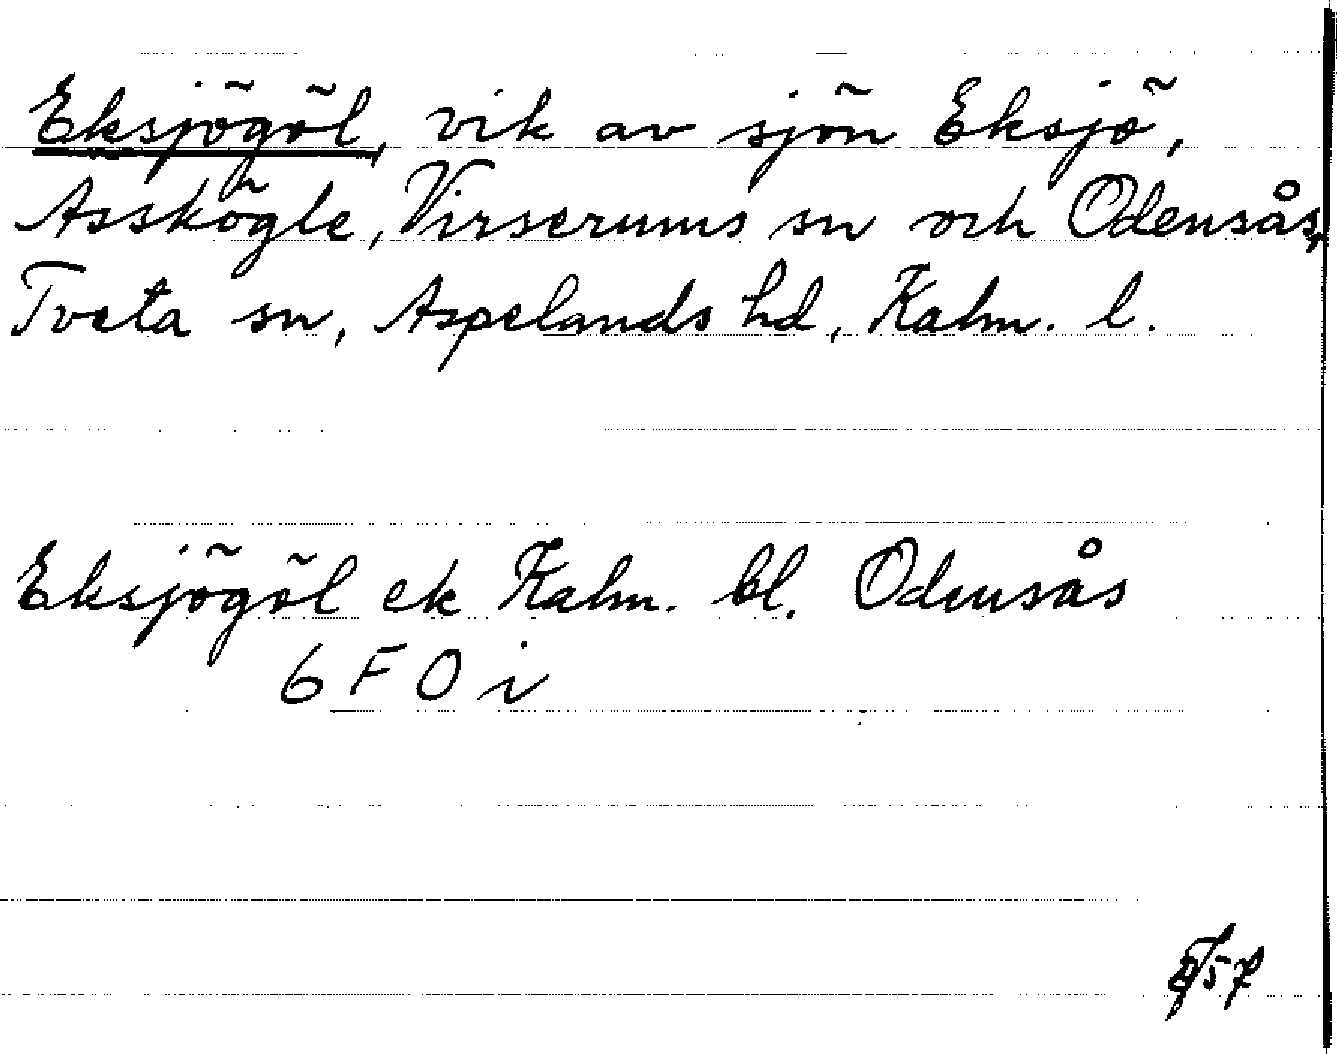 Eksjögöl, vik av sjön Eksjö,
Asskögle, Virserums sn och Odensås,
Tveta sn, Aspelands hd, Kalm. l.
Eksjögöl ek Kalm. bl. Odensås
6 F 0 i